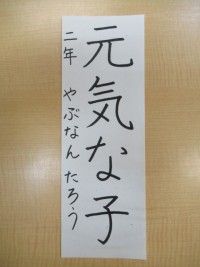 元気な子
二年 やぶなん たろう